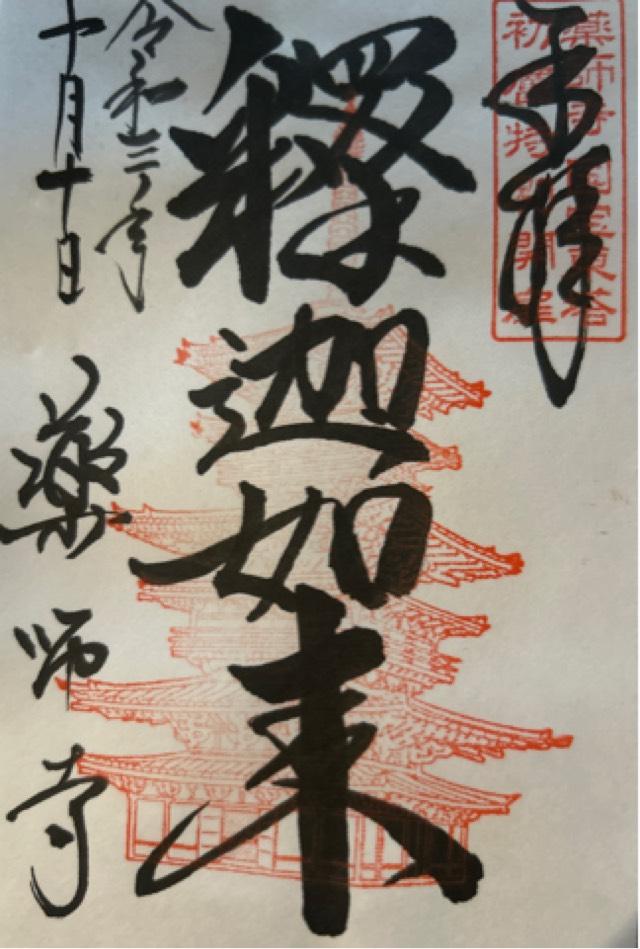 奉拝
薬師寺国宝東塔
初層特別開扉
釋迦如来
令和三年
十月十日
薬師寺